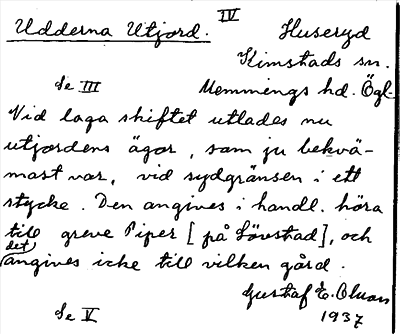 IV
Udderna Utjord. Huseryd
Kimstads sn.
Se III Memmings hd. Ögl.
Vid laga skiftet utlades nu
utjordens ägor, som ju bekvä-
mast var, vid sydgränsen i ett
stycke. Den angives i handl. höra
till greve Piper [på Lövstad], och
det angives icke till vilken gård.
Gustaf E. Oluan
Se V 1937